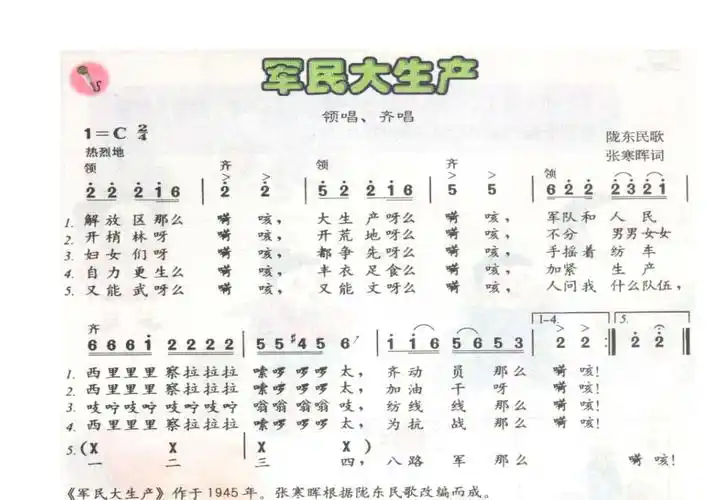 军民大生产
领唱、齐唱
1=C 2/4
陇东民歌
热烈地
张寒晖词
领 齐 领 齐 领
2 2 2 1 6 | 2 2 | 5 2 2 1 6 | 5 5 | 6 2 2 2 3 2 1
1. 解放区那么 嗬 咳， 大生产呀么 嗬 咳， 军队和 人民
2. 开梢林呀 嗬 咳， 开荒地呀么 嗬 咳， 不分 男男女女
3. 妇女们呀 嗬 咳， 都争先呀么 嗬 咳， 手摇着 纺车
4. 自力更生么 嗬 咳， 丰衣足食么 嗬 咳， 加紧 生产
5. 又能武呀么 嗬 咳， 又能文呀么 嗬 咳， 人问我 什么队伍，
齐 1-4. 5.
6 6 6 1 2 2 2 2 | 5 5 #4 5 6 | 1 1 6 5 6 5 3 | 2 2 :| 2 2
1. 西里里里 察拉拉拉 嗦啰 啰啰 太， 齐动 员 那么 嗬 咳！
2. 西里里里 察拉拉拉 嗦啰 啰啰 太， 加油 干 呀 嗬 咳！
3. 吱咛吱咛 吱咛吱咛 嗡嗡 嗡嗡 吱， 纺线 线 那么 嗬 咳！
4. 西里里里 察拉拉拉 嗦啰 啰啰 太， 为抗 战 那么 嗬 咳！
5. (X X X X)
一 二 三 四， 八路 军 那么 嗬 咳！
《军民大生产》作于1945年。张寒晖根据陇东民歌改编而成。